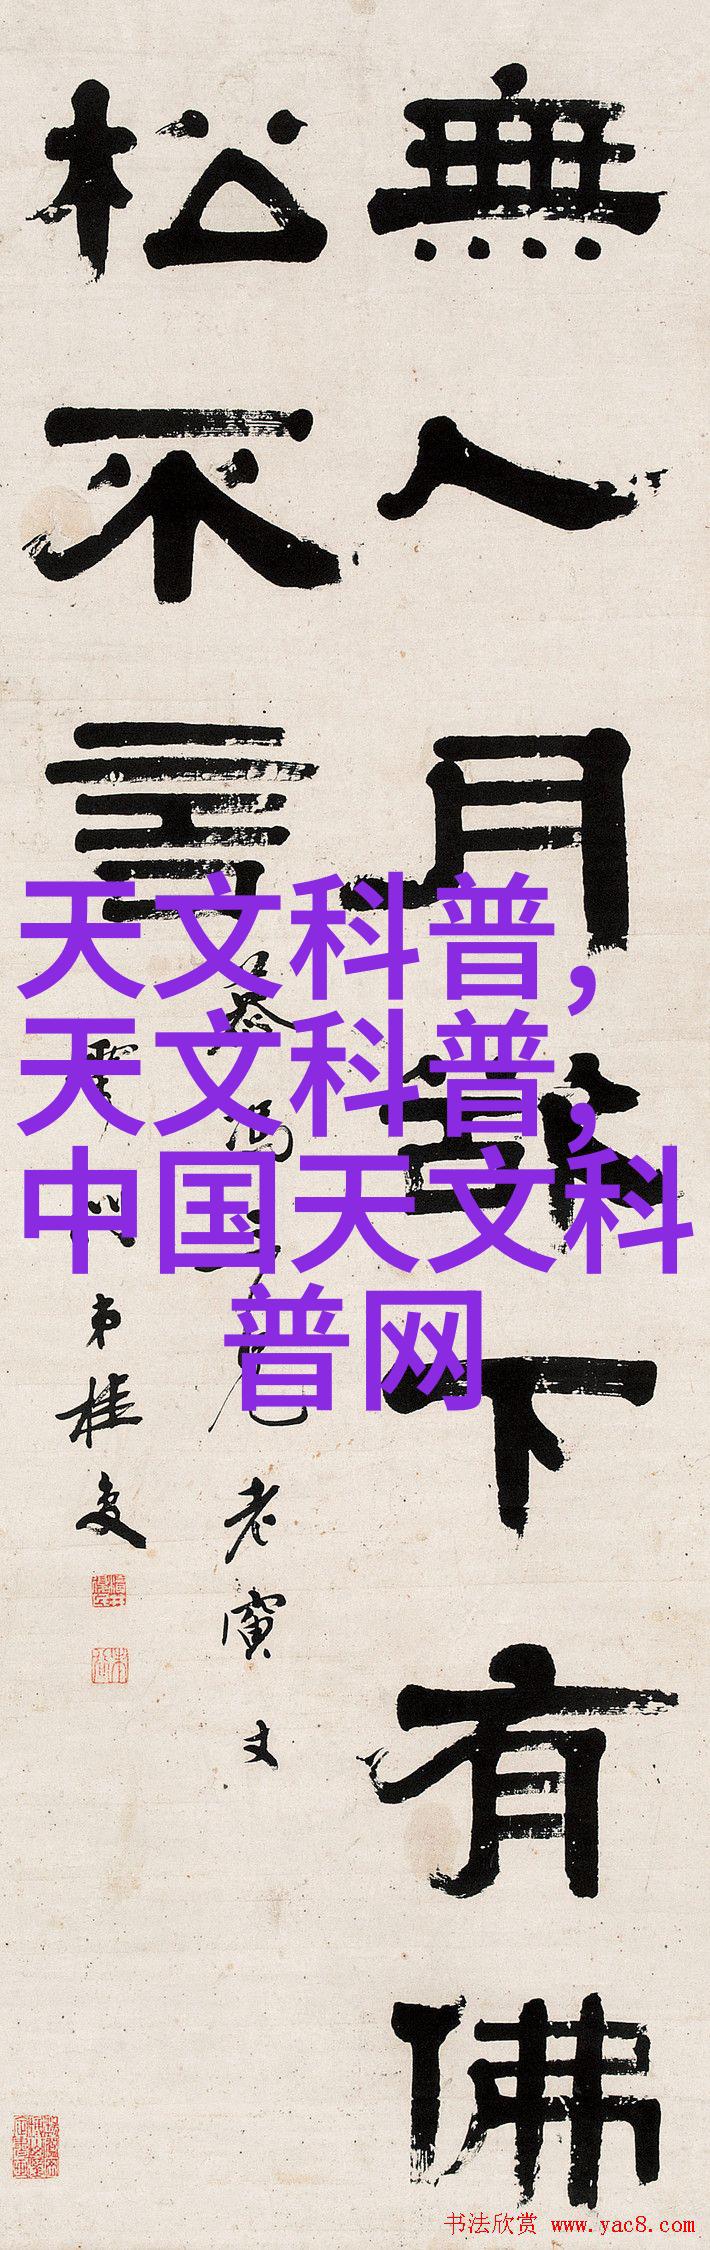 天文科普,
天文科普,
中国天文科
普网
無人月下有佛
松不言
老寅丈
弟桂
书法欣赏 www.yac8.com